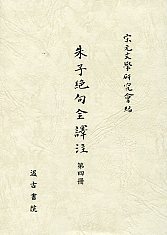 宋元文學研究會編
朱子絕句全譯注
第四冊
汲古書院